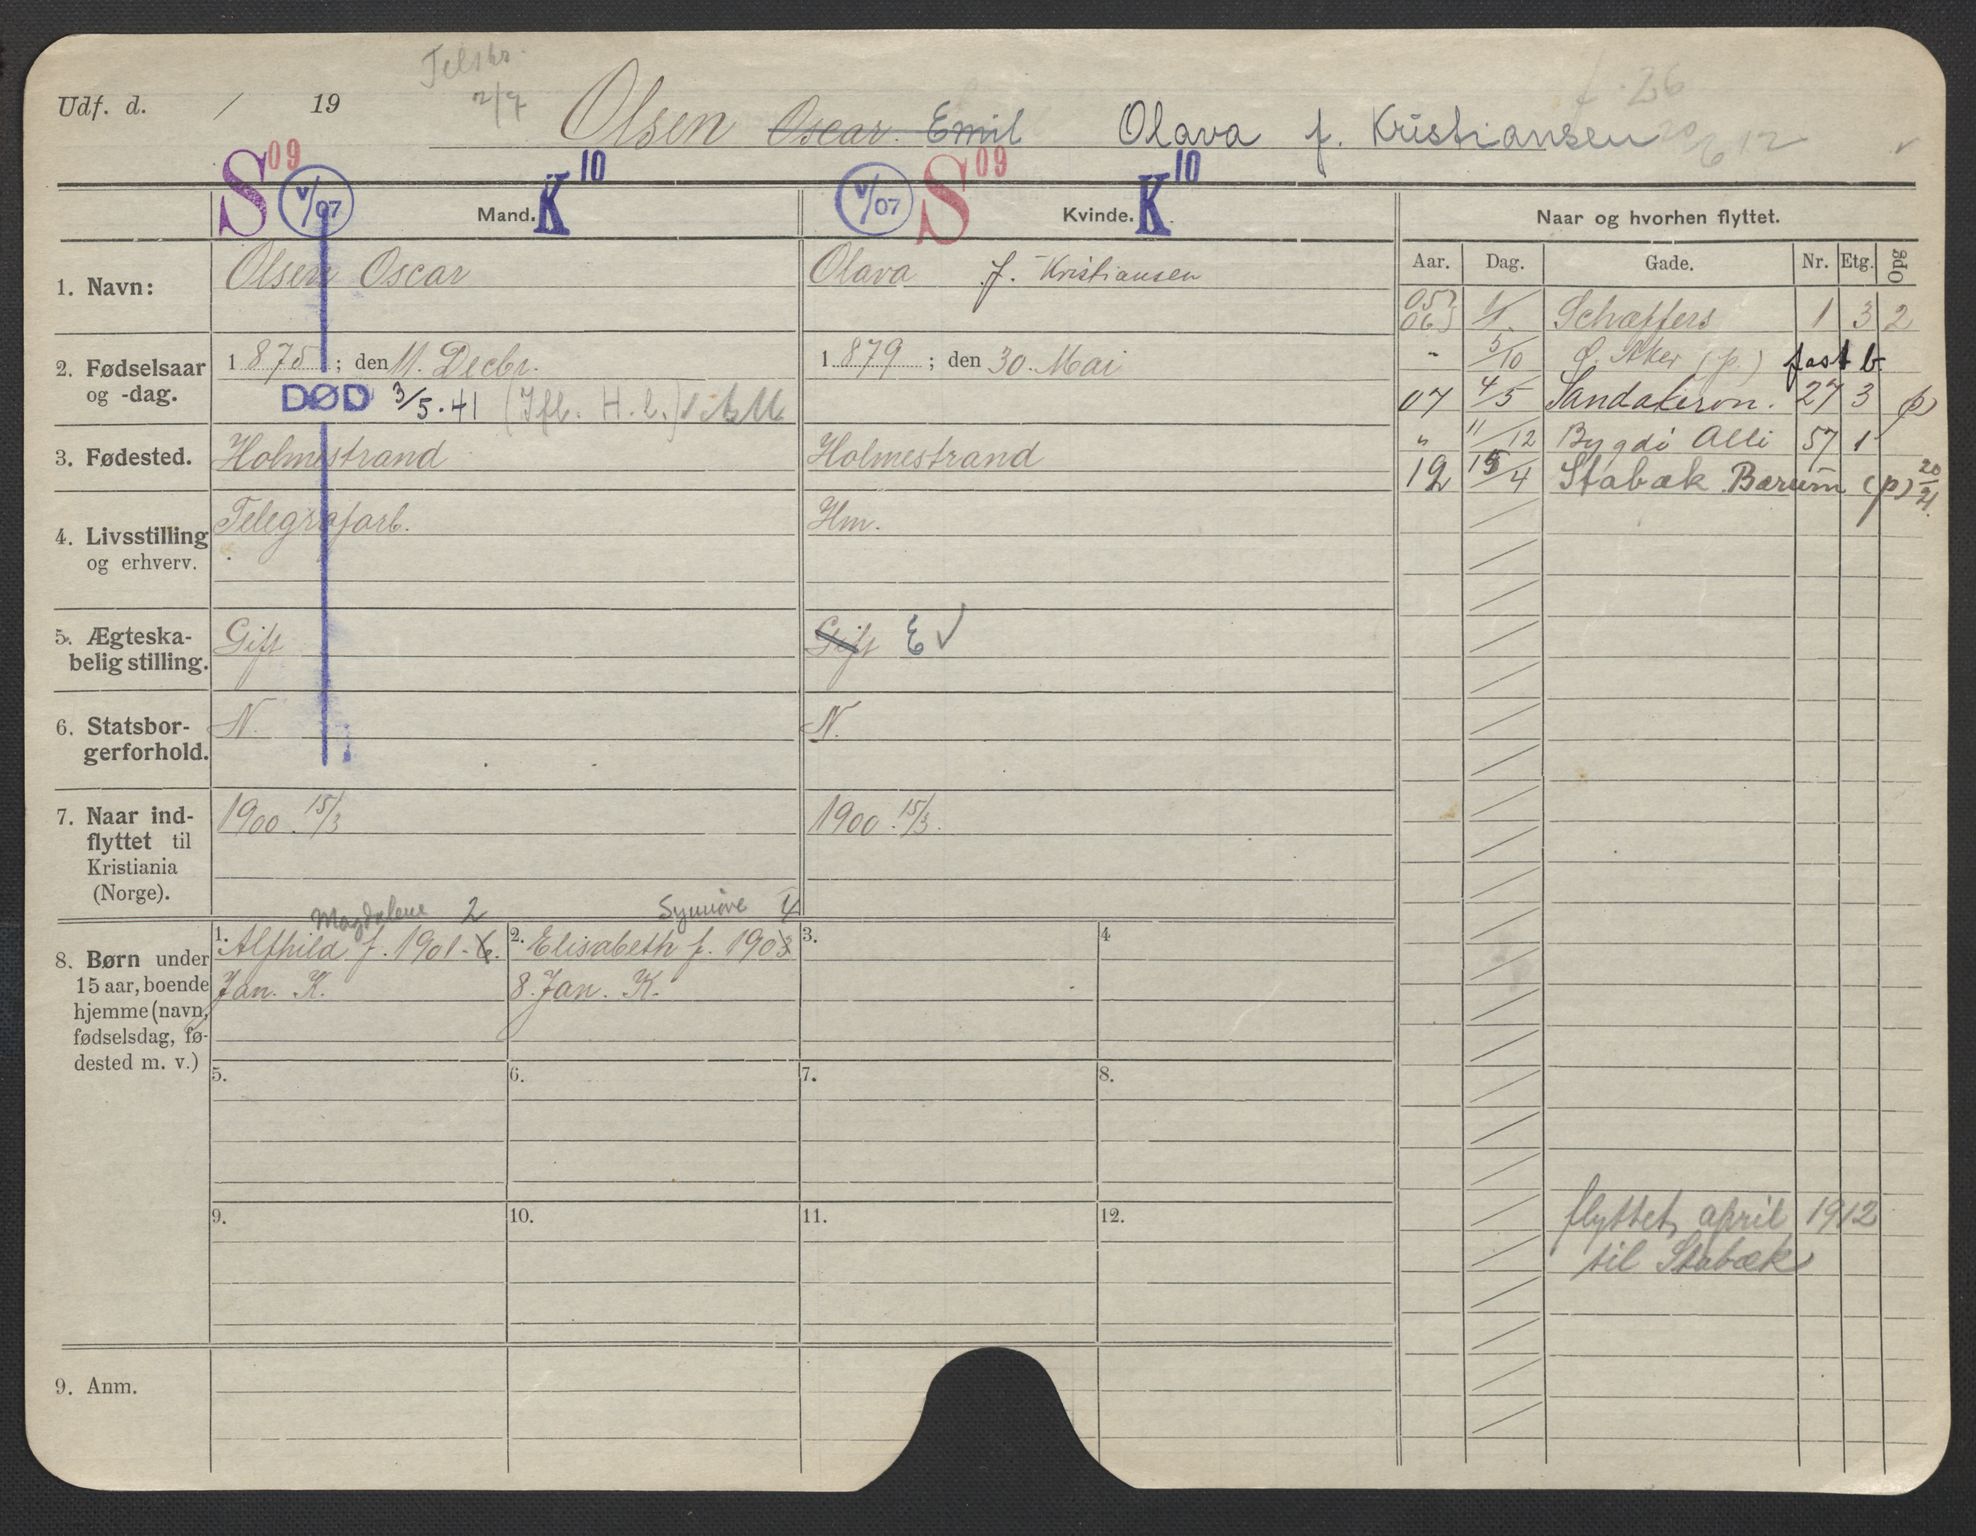 Telskr.
2/7
Udf. d. / 19
Olsen Oscar Emil Olava f. Kristiansen
f. 26
20/6 12
S 09 V/07 Mand. K 10
V/07 S 09 Kvinde. K 10
Naar og hvorhen flyttet.
Aar. Dag. Gade. Nr. Etg. Opg
1. Navn: Olsen Oscar
Olava f. Kristiansen
05 06 } 1/1. Schæffers 1 3 2
2. Fødselsaar og -dag. 1875 ; den 11. Decbr.
1879 ; den 30. Mai
" 5/10 Ø. Aker (p.) fast b.
DØD 3/5.41
07 4/5 Sandakervn. 27 3 (p)
3. Fødested. Holmestrand
Holmestrand
" 11/12 Bygdö Alle 57 1
12 15/4 Stabæk Bærum (p) 20/21.
4. Livsstilling og erhverv. Telegrafarb.
Hm.
5. Ægteska-
belig stilling. Gift
Gift E
6. Statsbor-
gerforhold. N.
N.
7. Naar ind-
flyttet til
Kristiania
(Norge).
1900. 15/3
1900. 15/3.
8. Børn under
15 aar, boende
hjemme (navn,
fødselsdag, fø-
dested m. v.)
Magdalene 2
1. Alfhild f. 1901 - 6.
Jan. K.
Synnöve 4
2. Elisabeth f. 1903
8. Jan. K.
3.
4
5.
6.
7.
8.
9.
10.
11.
12.
flyttet, april 1912
til Stabæk
9. Anm.